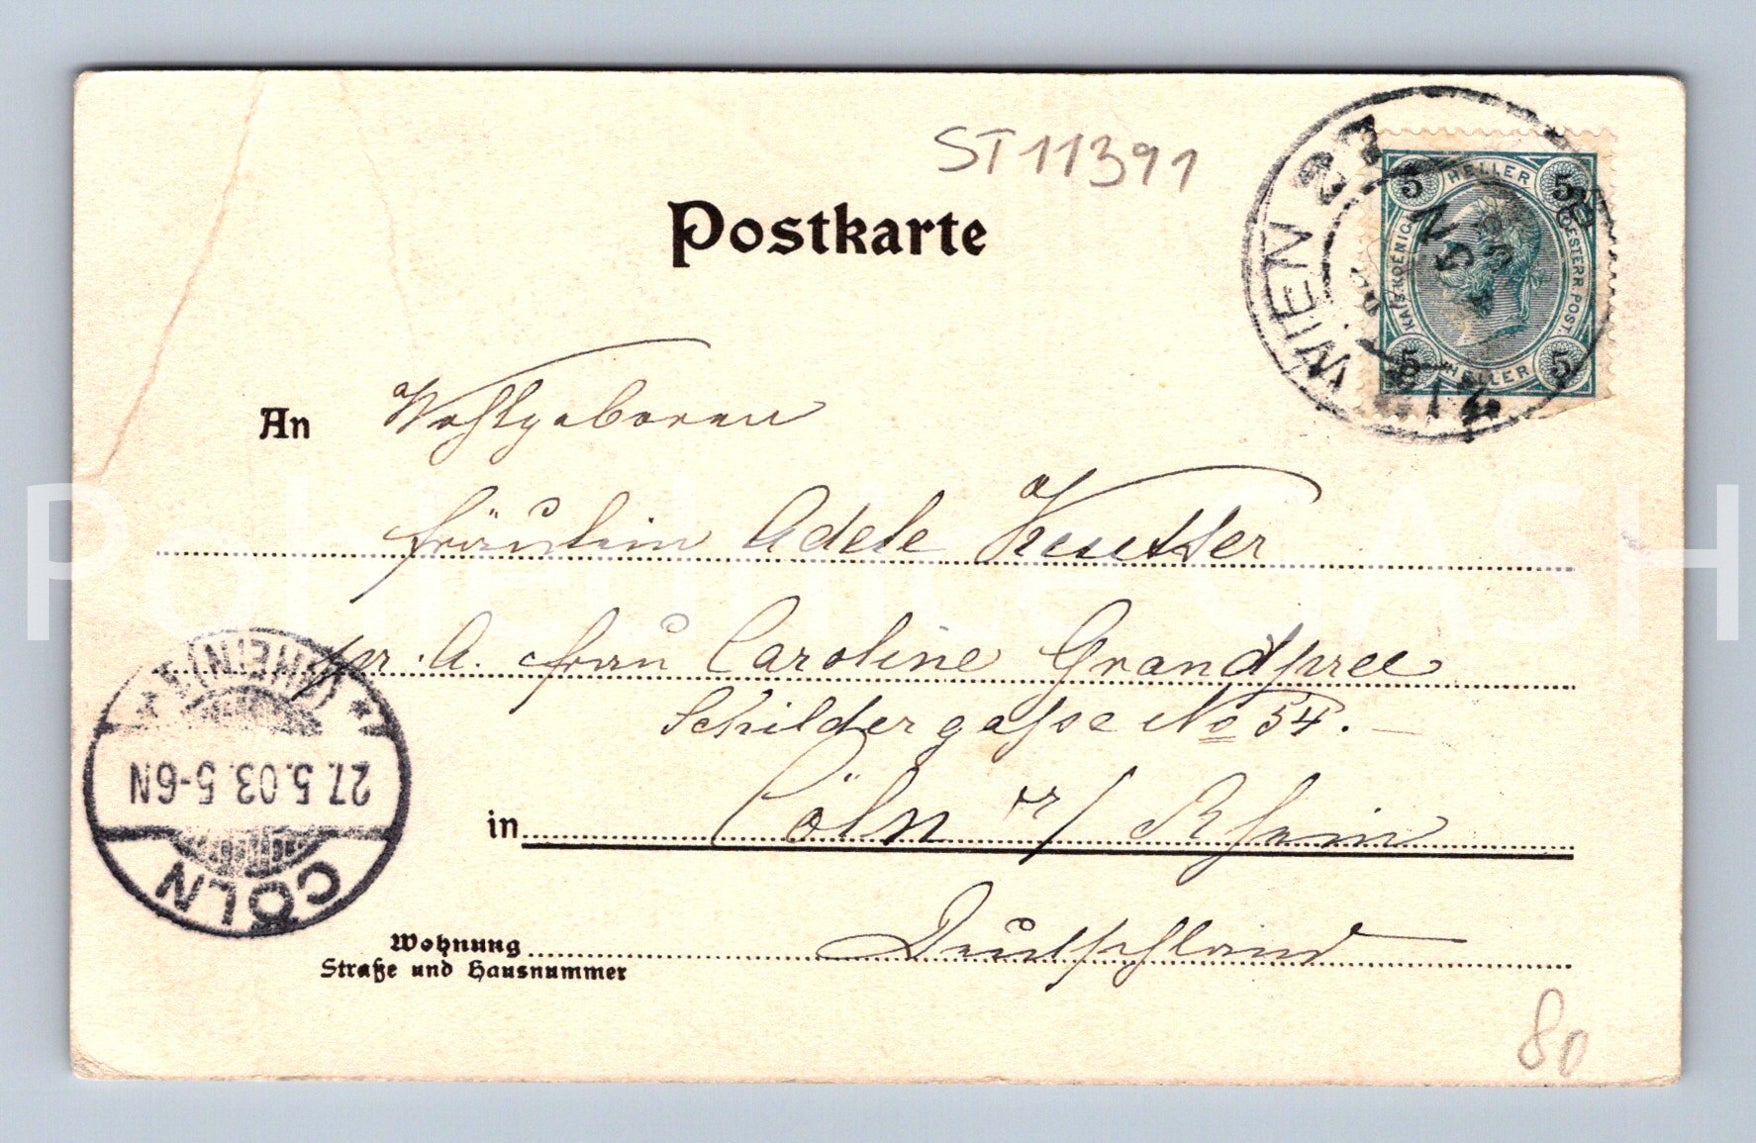 ST11391
Postkarte
WIEN
5 HELLER 5
KAIS. KOENIG. OESTERR. POST.
5 HELLER 5
An Wohlgeboren
Fräulein Adele
pr. A. Frau Caroline Grandpree
Schildergasse No 54.
in Cöln a/ Rhein
Wohnung Deutschland
Straße und Hausnummer
(RHEIN) 1
27.5.03. 5-6N
CÖLN
80